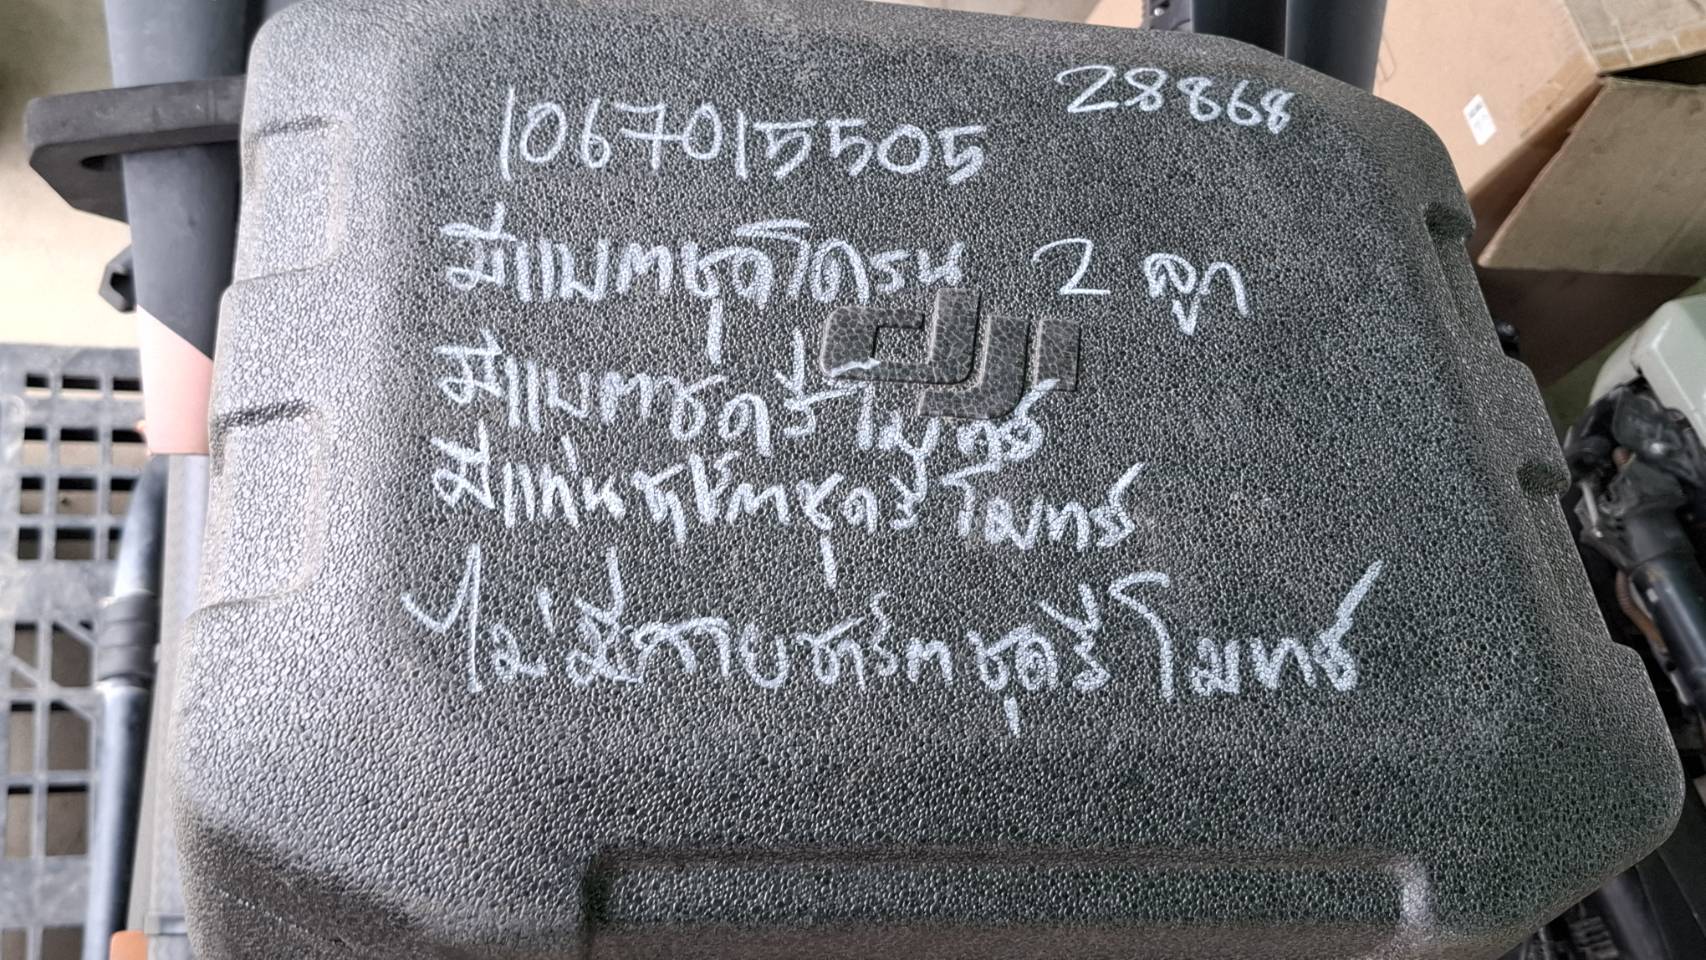 28868
1067015505
มีแบตชุดโดรน 2 ลูก
dji
มีแบตชุดรีโมทร์
มีแท่นชาร์ตชุดรีโมทร์
ไม่มีสายชาร์ตชุดรีโมทร์